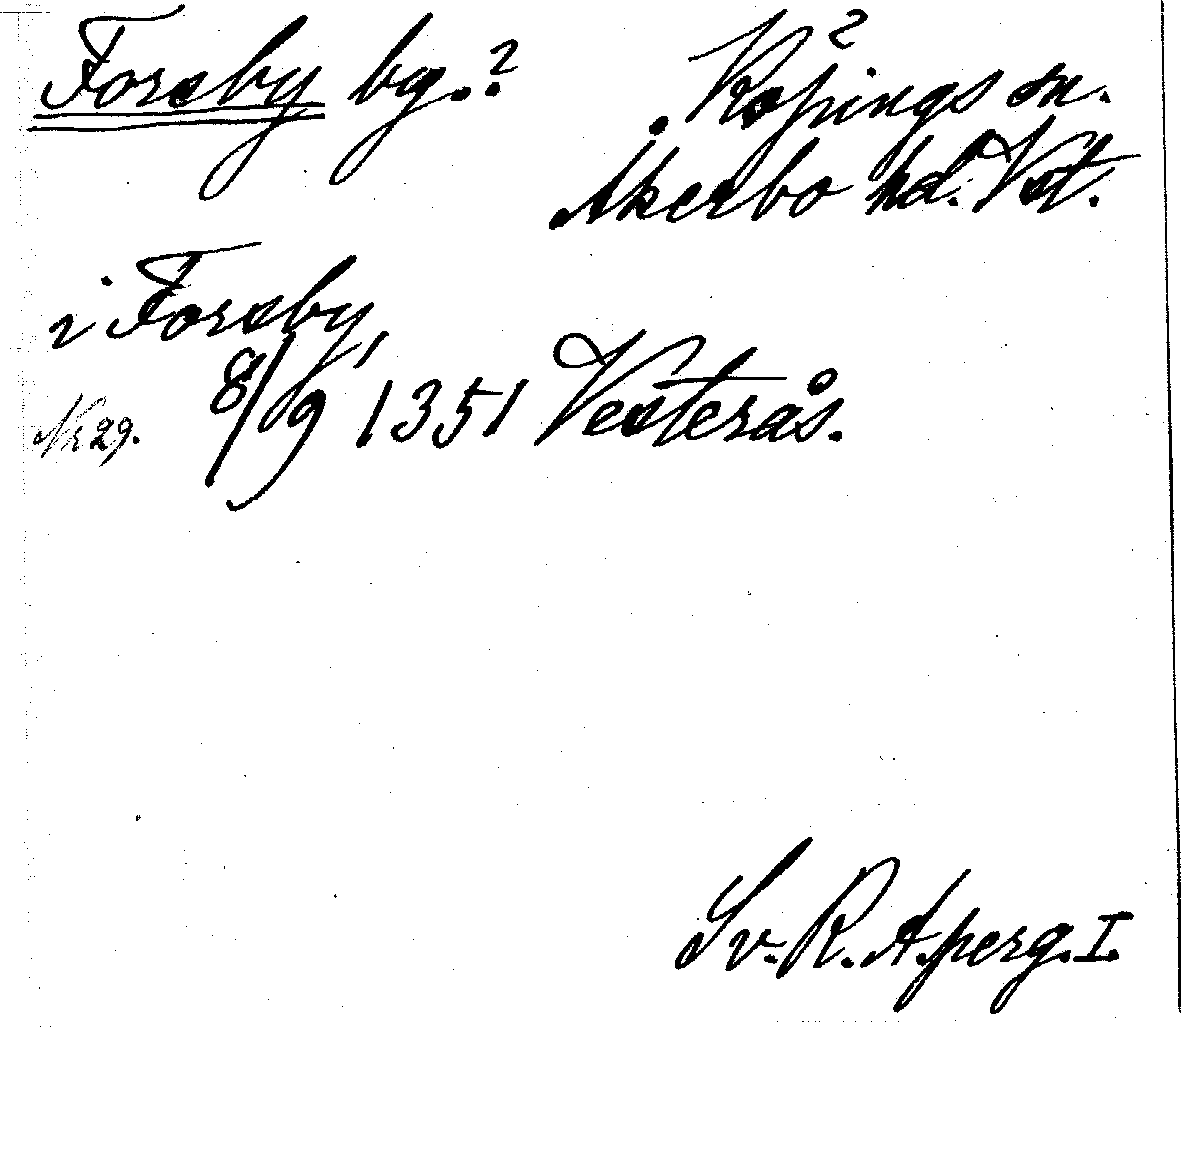 Forsby bg.? Köpings sn.?
Åkerbo hd. Vst.
i Forsby,
Nr 29. 8/9 1351 Vesterås.
Sv. R. A. perg. I.